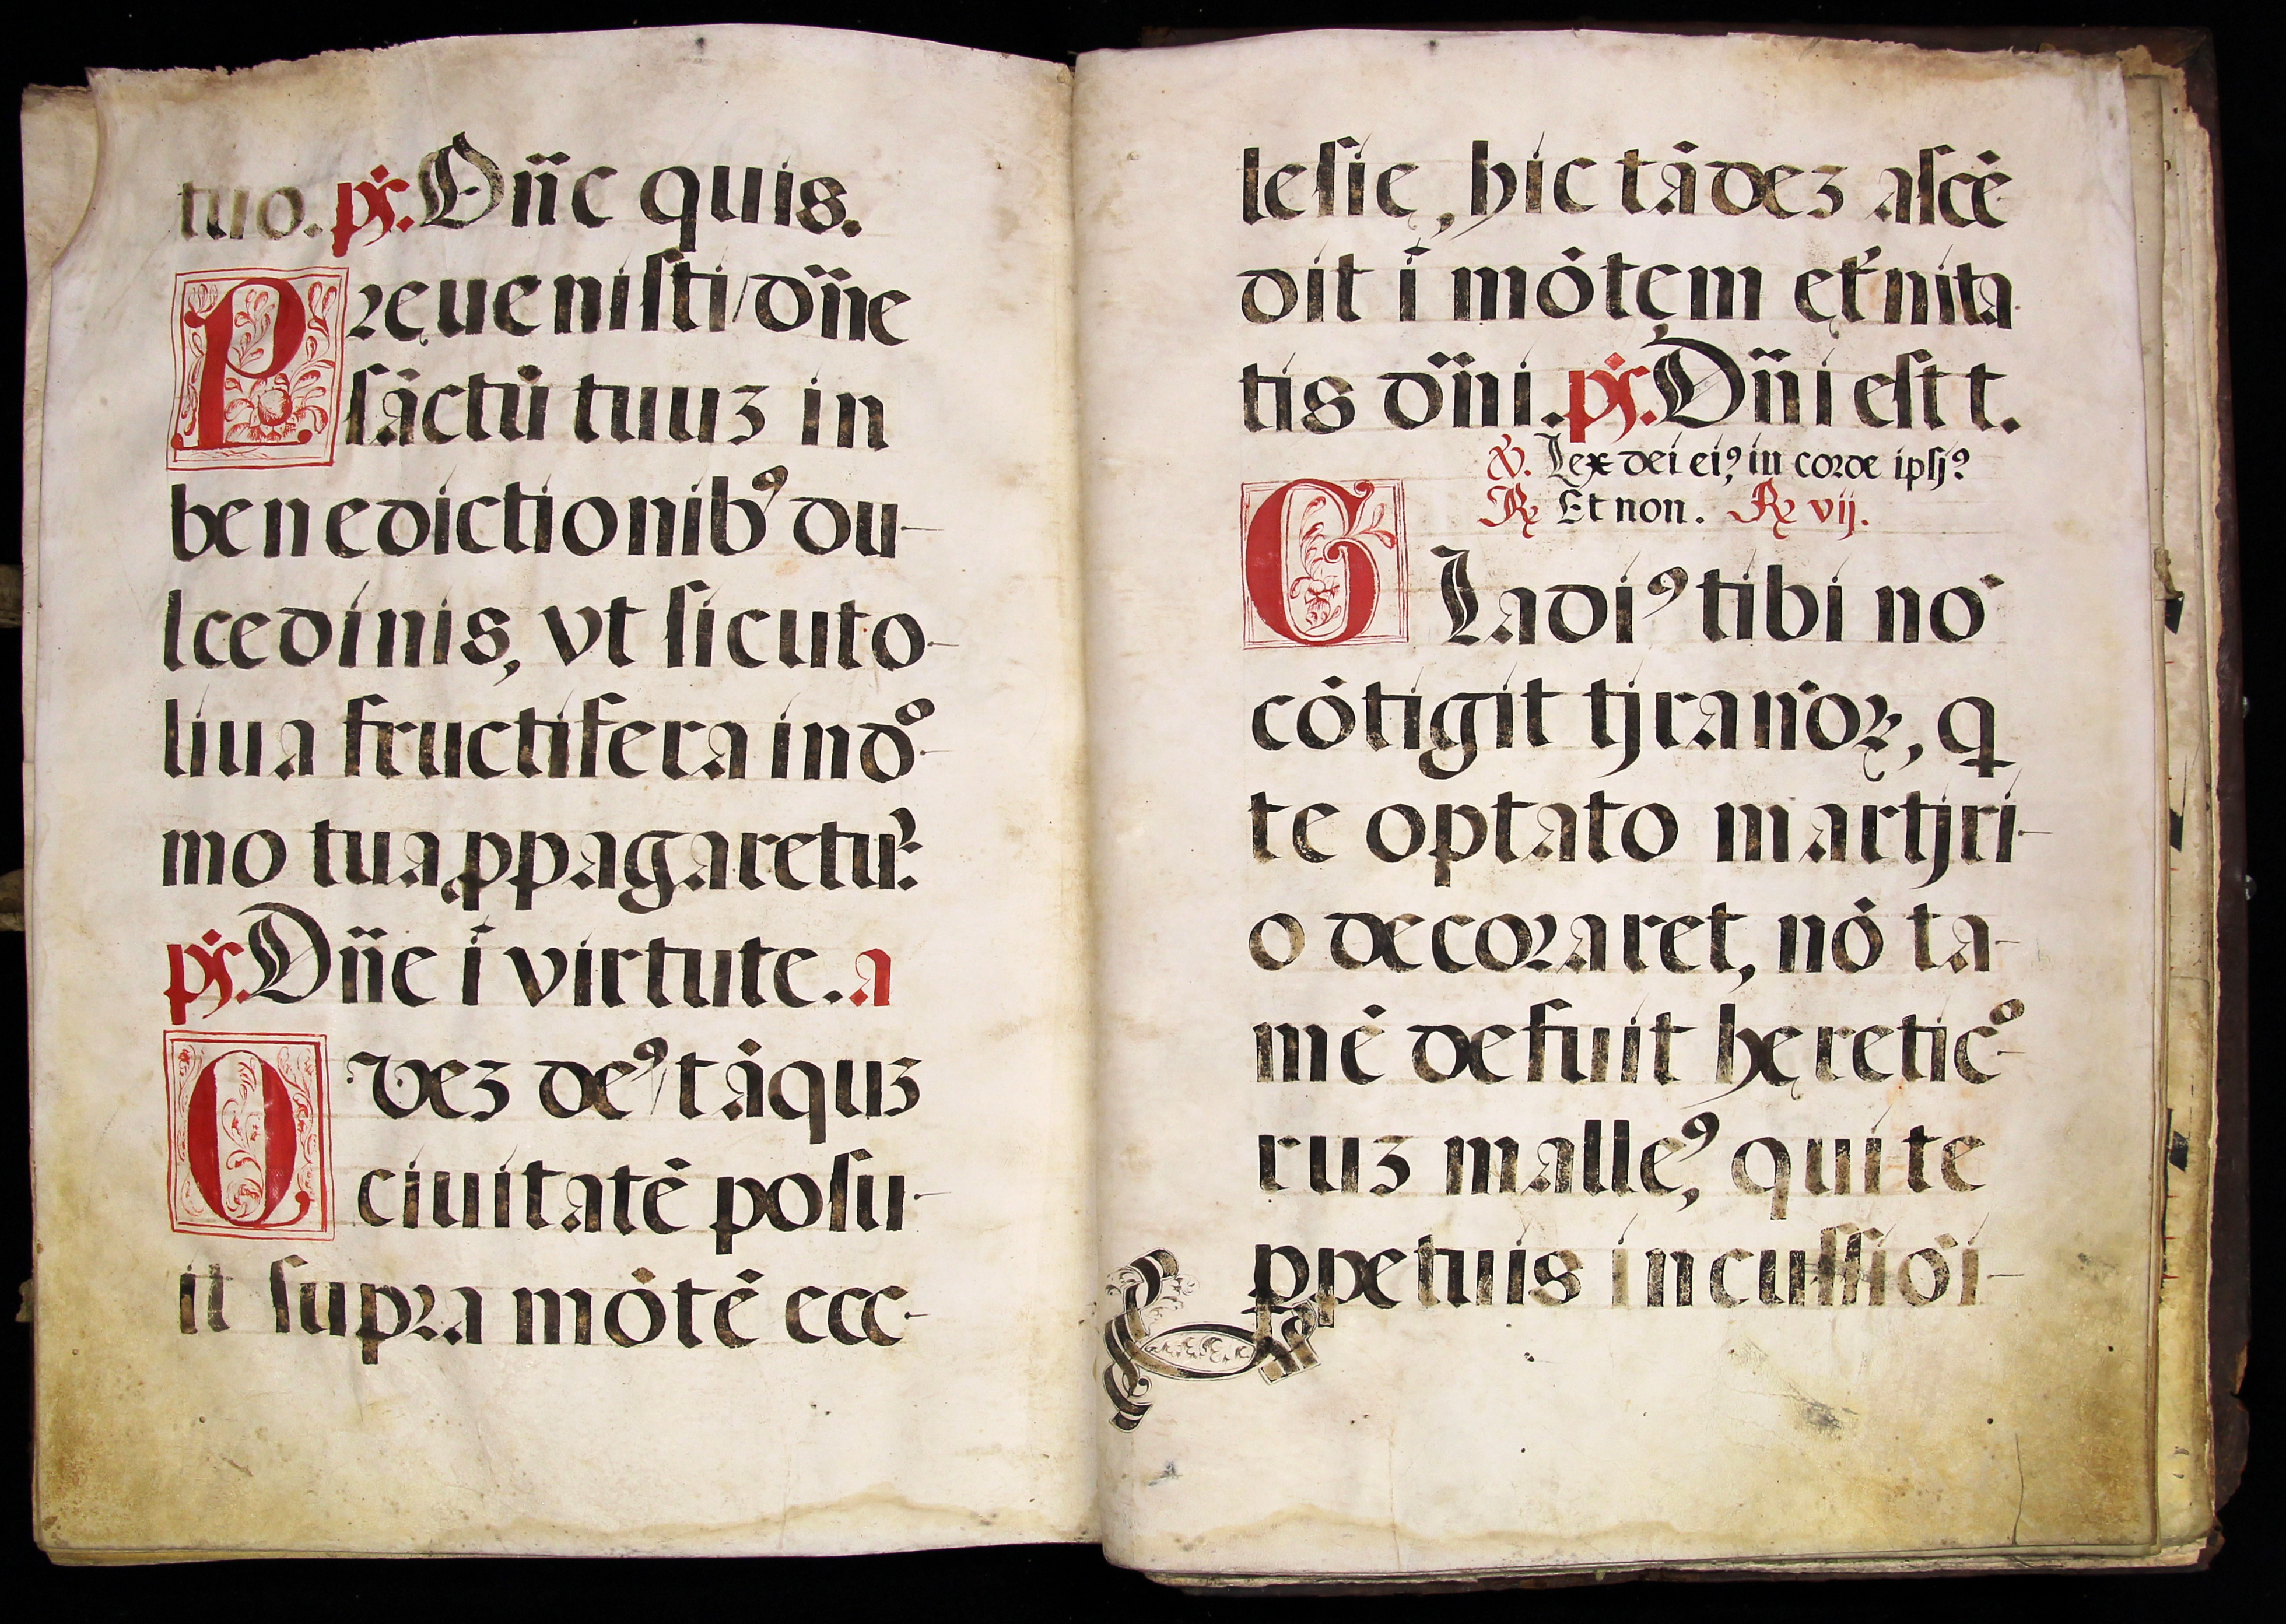 tuo. ps. Dn̄e quis.
Preuenisti dn̄e
sāctū tuuʒ in
benedictionibꝰ du-
lcedinis, vt sicut o-
liua fructifera in dº-
mo tua ꝓpagaretur̉.
ps. Dn̄e ī virtute. a
Quez deꝰ tāquʒ
ciuitatē posu-
it supra mōtē ecc-
lesie, hic tādeʒ ascē-
dit ī mōtem et̉nita-
tis dn̄i. ps. Dn̄i est t.
℣. Lex dei eiꝰ in corde ipsiꝰ
℟ Et non. ℟ vij.
Gladiꝰ tibi nō
cōtigit tyrannoꝝ, q
te optato martyri-
o decoraret, nō ta-
mē defuit hęreticº-
ruʒ malleꝰ, qui te
ꝑpetuis incussiōi-